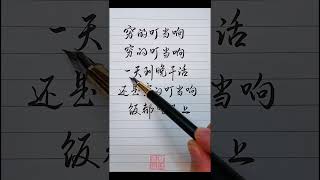 穷的叮当响
穷的叮当响
一天到晚干活
还是的叮当响
饭都上